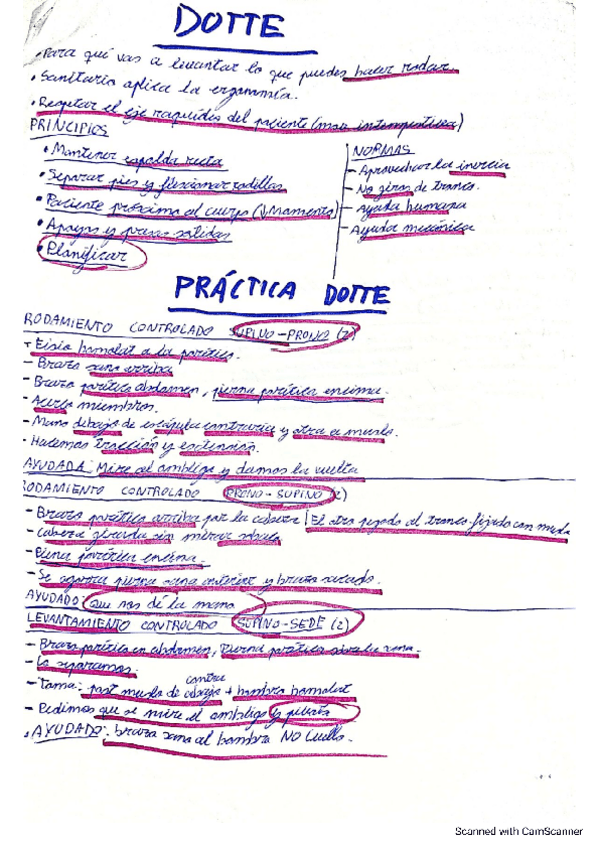 DOTTE
• Para qué vas a levantar lo que puedes hacer rodar.
• Sanitario aplica la ergonomía.
• Respetar el eje raquídeo del paciente (mov intempestivos)
PRINCIPIOS
• Mantener espalda recta
• Separar pies y flexionar rodillas
• Paciente próximo al cuerpo (↓Momento)
• Apoyos y presas sólidas
• Planificar
NORMAS
- Aprovechar la inercia
- No giros de tronco.
- Ayuda humana
- Ayuda mecánica
PRÁCTICA DOTTE
RODAMIENTO CONTROLADO SUPINO-PRONO (2)
+ Fisio homolat a la parética.
- Brazo sano arriba
- Brazo parético abdomen, pierna parética encima.
- Acerco miembros.
- Mano debajo de escápula contraria y otra a muslo.
- Hacemos tracción y extensión.
AYUDADA: Mire al ombligo y damos la vuelta
RODAMIENTO CONTROLADO PRONO-SUPINO (2)
- Brazo parético arriba por la cabeza | El otro pegado al tronco fijado con muslo
- Cabeza girada sin mirar
- Pierna parética encima.
- Se agarra pierna sana anterior y brazo
AYUDADO: Que nos dé la mano
LEVANTAMIENTO CONTROLADO SUPINO-SEDE (2)
- Brazo parético en abdomen, Pierna parética sana.
- Lo separamos.
- Toma: post muslo de abajo contra + hombro homolat
- Pedimos que se mire el ombligo y pivota
• AYUDADO: brazo sano al hombro NO Cuello.
Scanned with CamScanner